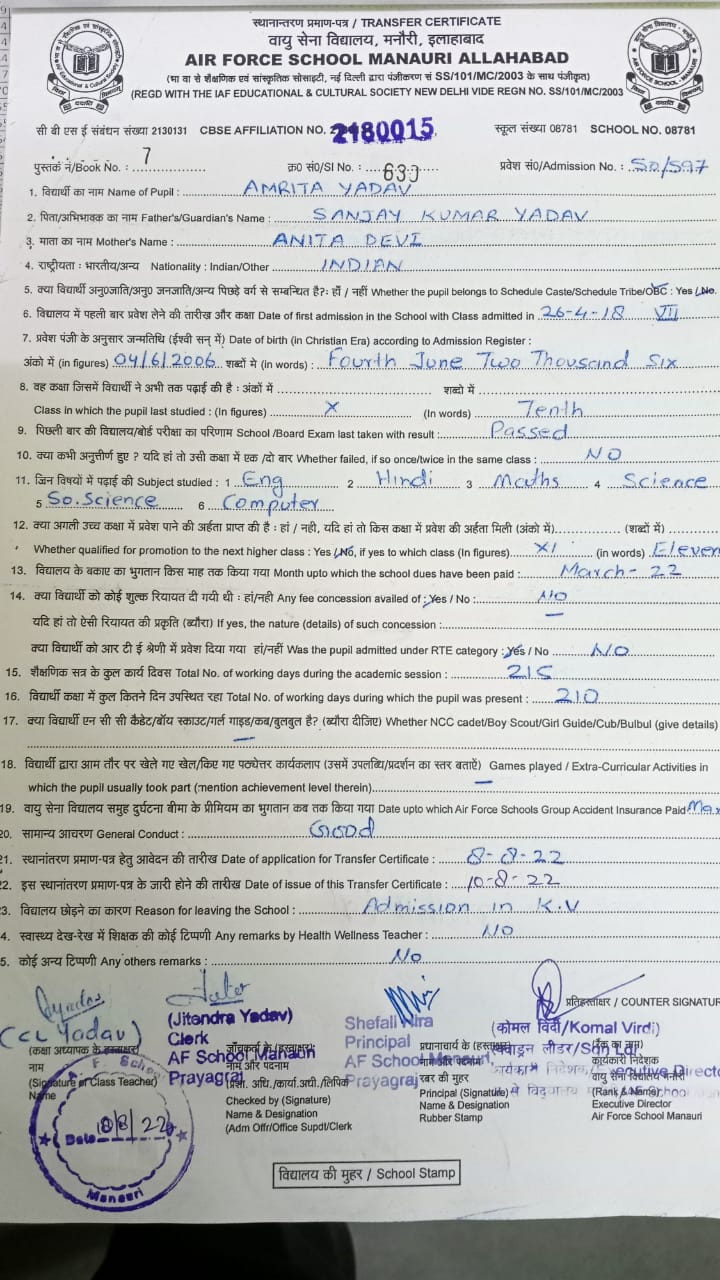 स्थानान्तरण प्रमाण-पत्र / TRANSFER CERTIFICATE
वायु सेना विद्यालय, मनौरी, इलाहाबाद
AIR FORCE SCHOOL MANAURI ALLAHABAD
(भा वा से शैक्षणिक एवं सांस्कृतिक सोसाइटी, नई दिल्ली द्वारा पंजीकरण सं SS/101/MC/2003 के साथ पंजीकृत)
(REGD WITH THE IAF EDUCATIONAL & CULTURAL SOCIETY NEW DELHI VIDE REGN NO. SS/101/MC/2003
सी बी एस ई संबंधन संख्या 2130131 CBSE AFFILIATION NO. 2180015 स्कूल संख्या 08781 SCHOOL NO. 08781
पुस्तक नं/Book No. : 7 क्र० सं०/Sl No. : 630 प्रवेश सं०/Admission No. : 50/597
1. विद्यार्थी का नाम Name of Pupil : AMRITA YADAV
2. पिता/अभिभावक का नाम Father's/Guardian's Name : SANJAY KUMAR YADAV
3. माता का नाम Mother's Name : ANITA DEVI
4. राष्ट्रीयता : भारतीय/अन्य Nationality : Indian/Other INDIAN
5. क्या विद्यार्थी अनु०जाति/अनु० जनजाति/अन्य पिछड़े वर्ग से सम्बन्धित है?: हाँ / नहीं Whether the pupil belongs to Schedule Caste/Schedule Tribe/OBC : Yes / No.
6. विद्यालय में पहली बार प्रवेश लेने की तारीख और कक्षा Date of first admission in the School with Class admitted in 26-4-18 VII
7. प्रवेश पंजी के अनुसार जन्मतिथि (ईश्वी सन् में) Date of birth (in Christian Era) according to Admission Register :
अंको में (in figures) 04/6/2006 शब्दो में (in words) : Fourth June Two Thousand Six
8. वह कक्षा जिसमें विद्यार्थी ने अभी तक पढ़ाई की है : अंकों में शब्दो में
Class in which the pupil last studied : (In figures) X (In words) Tenth
9. पिछली बार की विद्यालय/बोर्ड परीक्षा का परिणाम School /Board Exam last taken with result : Passed
10. क्या कभी अनुत्तीर्ण हुए ? यदि हां तो उसी कक्षा में एक /दो बार Whether failed, if so once/twice in the same class : NO
11. जिन विषयों में पढ़ाई की Subject studied : 1 Eng 2 Hindi 3 Maths 4 Science
5 So.Science 6 Computer
12. क्या अगली उच्च कक्षा में प्रवेश पाने की अर्हता प्राप्त की है : हां / नही, यदि हां तो किस कक्षा में प्रवेश की अर्हता मिली (अंको में) (शब्दों में)
Whether qualified for promotion to the next higher class : Yes / No, if yes to which class (In figures) XI (in words) Eleven
13. विद्यालय के बकाए का भुगतान किस माह तक किया गया Month upto which the school dues have been paid : March-22
14. क्या विद्यार्थी को कोई शुल्क रियायत दी गयी थी : हां/नही Any fee concession availed of : Yes / No : NO
यदि हां तो ऐसी रियायत की प्रकृति (ब्यौरा) If yes, the nature (details) of such concession : —
क्या विद्यार्थी को आर टी ई श्रेणी में प्रवेश दिया गया हां/नहीं Was the pupil admitted under RTE category : Yes / No NO
15. शैक्षणिक सत्र के कुल कार्य दिवस Total No. of working days during the academic session : 215
16. विद्यार्थी कक्षा में कुल कितने दिन उपस्थित रहा Total No. of working days during which the pupil was present : 210
17. क्या विद्यार्थी एन सी सी कैडेट/बॉय स्काउट/गर्ल गाइड/कब/बुलबुल है? (ब्यौरा दीजिए) Whether NCC cadet/Boy Scout/Girl Guide/Cub/Bulbul (give details)
—
18. विद्यार्थी द्वारा आम तौर पर खेले गए खेल/किए गए पठ्येत्तर कार्यकलाप (उसमें उपलब्धि/प्रदर्शन का स्तर बताऐं) Games played / Extra-Curricular Activities in
which the pupil usually took part (mention achievement level therein) —
19. वायु सेना विद्यालय समुह दुर्घटना बीमा के प्रीमियम का भुगतान कब तक किया गया Date upto which Air Force Schools Group Accident Insurance Paid
20. सामान्य आचरण General Conduct : Good
21. स्थानांतरण प्रमाण-पत्र हेतु आवेदन की तारीख Date of application for Transfer Certificate : 8-8-22
22. इस स्थानांतरण प्रमाण-पत्र के जारी होने की तारीख Date of issue of this Transfer Certificate : 10-8-22
3. विद्यालय छोड़ने का कारण Reason for leaving the School : Admission in K.V
4. स्वास्थ्य देख-रेख में शिक्षक की कोई टिप्पणी Any remarks by Health Wellness Teacher : NO
5. कोई अन्य टिप्पणी Any others remarks : No
प्रतिहस्ताक्षर / COUNTER SIGNATUR
(CL Yadav) (Jitendra Yadav) Shefali Mira (कोमल विर्दी/Komal Virdi)
Clerk Principal
(कक्षा अध्यापक के हस्ताक्षर) AF School Manauri AF School Manauri कार्यकारी निदेशक
नाम Prayagraj Prayagraj वायु सेना विद्यालय मनौरी
(Signature of Class Teacher) Checked by (Signature) रबर की मुहर (Rank & Name)
Name Name & Designation Principal (Signature) Executive Director
(Adm Offr/Office Supdt/Clerk Name & Designation Air Force School Manauri
Rubber Stamp
Date 8/8/22
Manauri
विद्यालय की मुहर / School Stamp